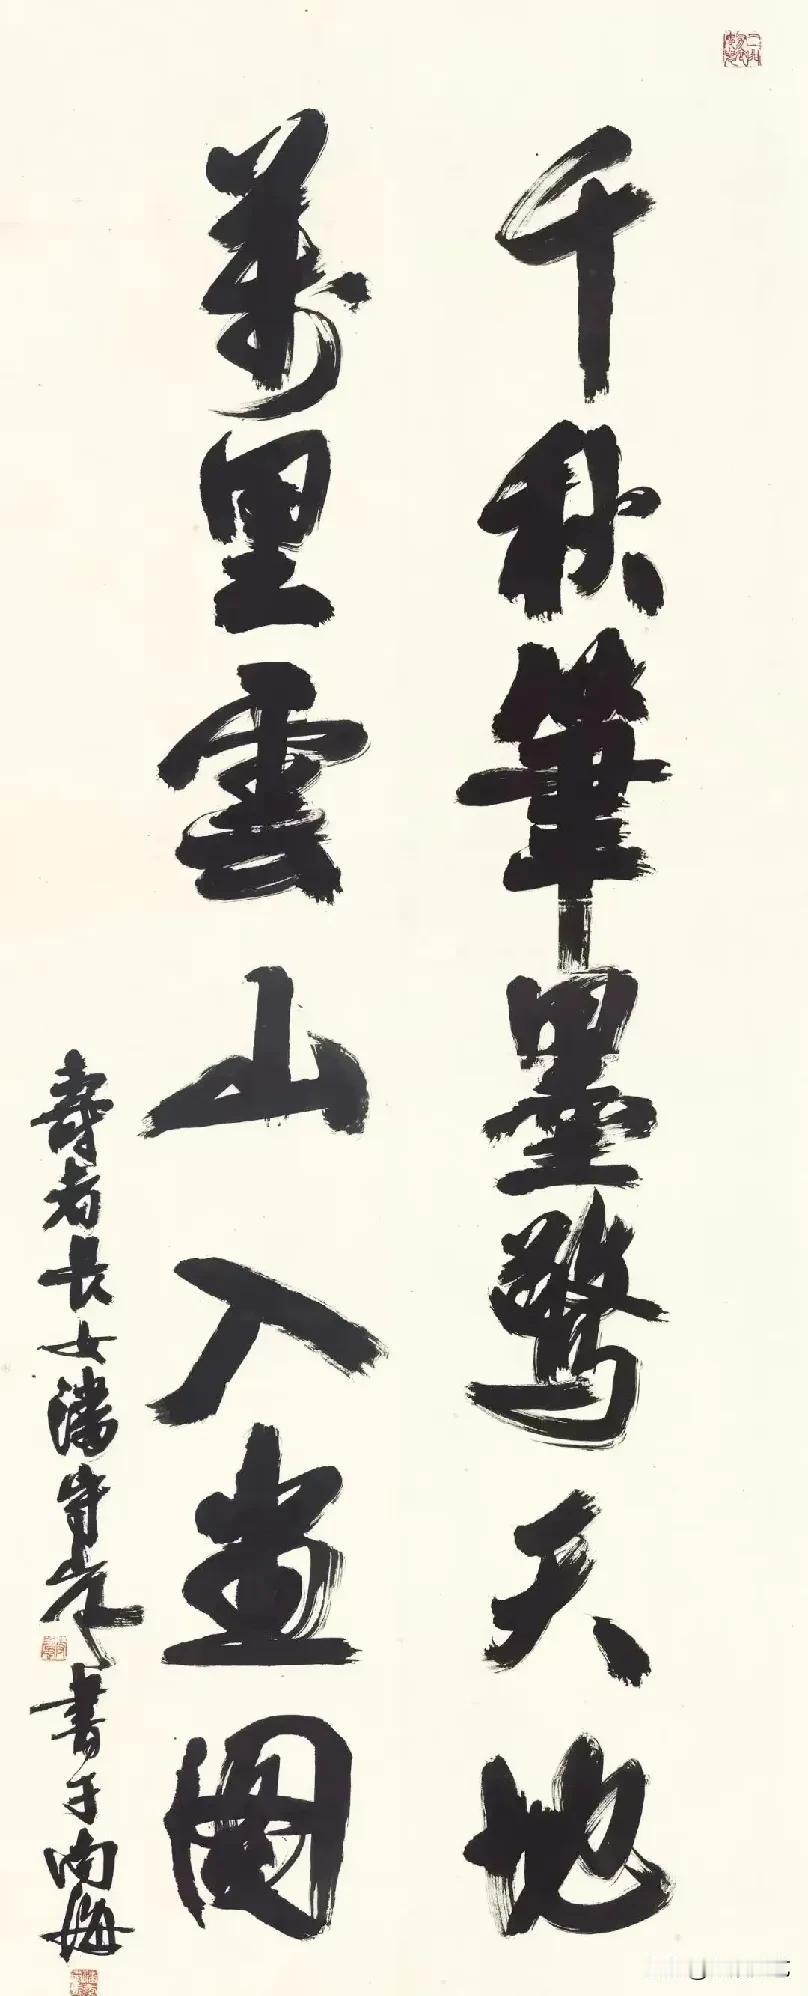 千秋筆墨驚天地
萬里雲山入畫圖
壽者長女潘守岸書于南海